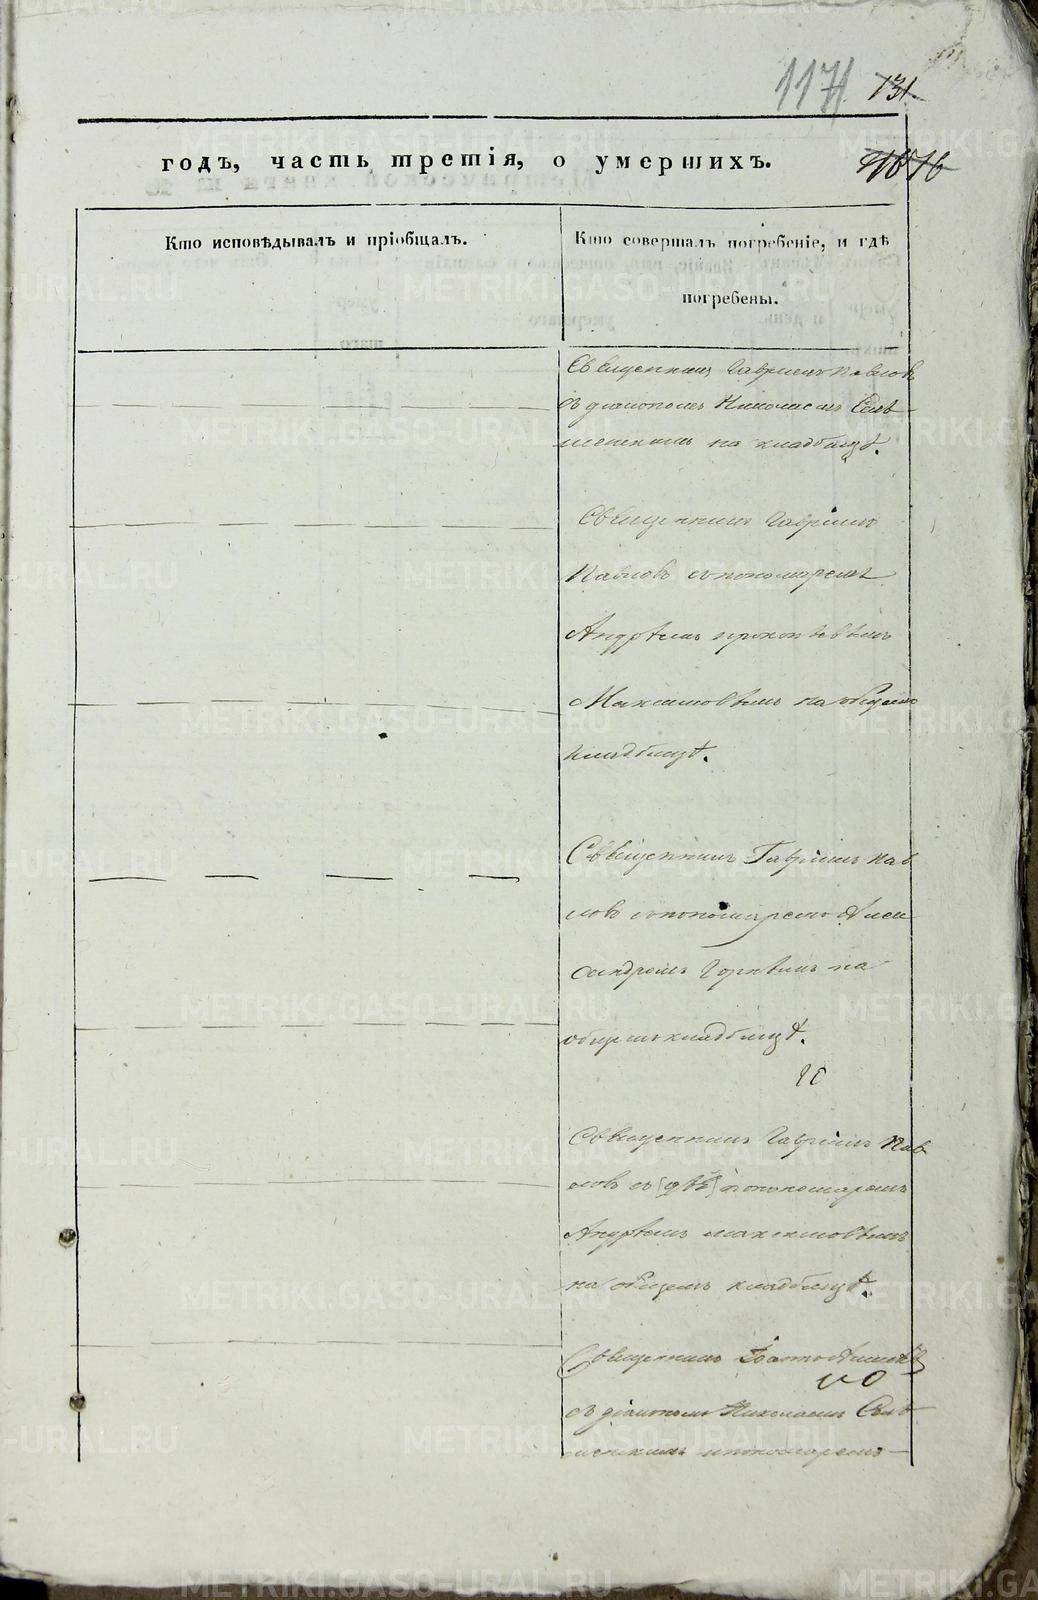 1171 131
годъ, часть третія, о умершихъ.
Кто исповѣдывалъ и пріобщалъ.
Кто совершалъ погребеніе, и гдѣ
погребены.
Священникъ Гавріилъ Павловъ
съ діакономъ Николаемъ
на кладбищѣ.
Священникъ Гавріилъ
Павловъ съ пономаремъ
Андреемъ Прокопьевымъ
Максимовымъ на общемъ
кладбищѣ.
Священникъ Гавріилъ Пав
ловъ съ пономаремъ Алек
сандромъ на
общемъ кладбищѣ.
Священникъ Гавріилъ Пав
ловъ съ пономаремъ
Андреемъ Максимовымъ
на общемъ кладбищѣ.
Священникъ
съ діакономъ Николаемъ
и пономаремъ
METRIKI.GASO-URAL.RU